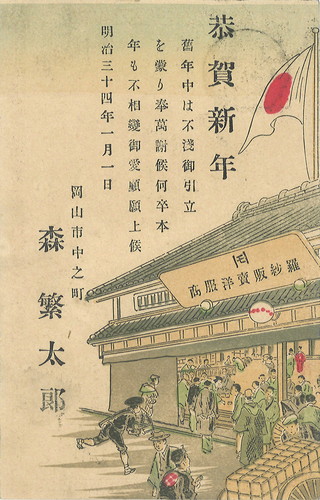 恭賀新年
舊年中は不淺御引立
を蒙り奉萬謝候何卒本
年も不相變御愛顧願上候
明治三十四年一月一日
岡山市中之町
森繁太郎
羅紗販賣洋服商